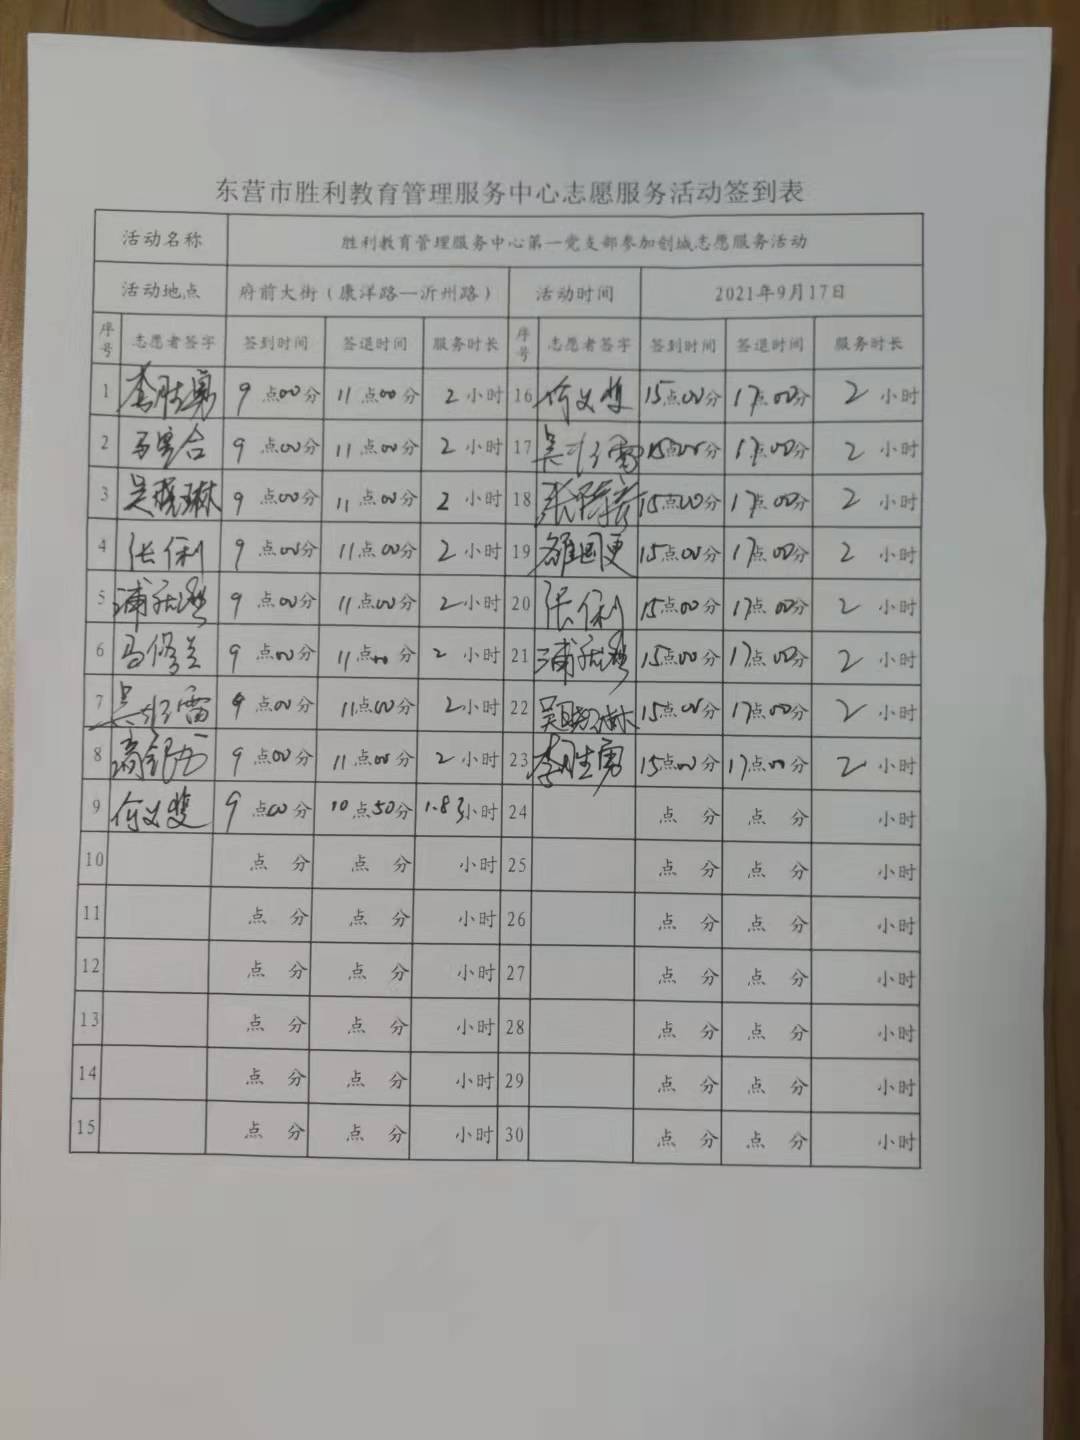 东营市胜利教育管理服务中心志愿服务活动签到表
活动名称 胜利教育管理服务中心第一党支部参加创城志愿服务活动
活动地点 府前大街（康洋路—沂州路） 活动时间 2021年9月17日
序号 志愿者签字 签到时间 签退时间 服务时长 序号 志愿者签字 签到时间 签退时间 服务时长
1 李胜勇 9点00分 11点00分 2小时 16 15点00分 17点00分 2小时
2 9点00分 11点00分 2小时 17 吴 雷 15点00分 17点00分 2小时
3 吴晓琳 9点00分 11点00分 2小时 18 张 15点00分 17点00分 2小时
4 张保利 9点00分 11点00分 2小时 19 15点00分 17点00分 2小时
5 浦 9点00分 11点00分 2小时 20 张保利 15点00分 17点00分 2小时
6 马修兰 9点00分 11点00分 2小时 21 浦 15点00分 17点00分 2小时
7 吴 雷 9点00分 11点00分 2小时 22 吴晓琳 15点00分 17点00分 2小时
8 9点00分 11点00分 2小时 23 李胜勇 15点00分 17点00分 2小时
9 9点00分 10点50分 1.83小时 24 点 分 点 分 小时
10 点 分 点 分 小时 25 点 分 点 分 小时
11 点 分 点 分 小时 26 点 分 点 分 小时
12 点 分 点 分 小时 27 点 分 点 分 小时
13 点 分 点 分 小时 28 点 分 点 分 小时
14 点 分 点 分 小时 29 点 分 点 分 小时
15 点 分 点 分 小时 30 点 分 点 分 小时